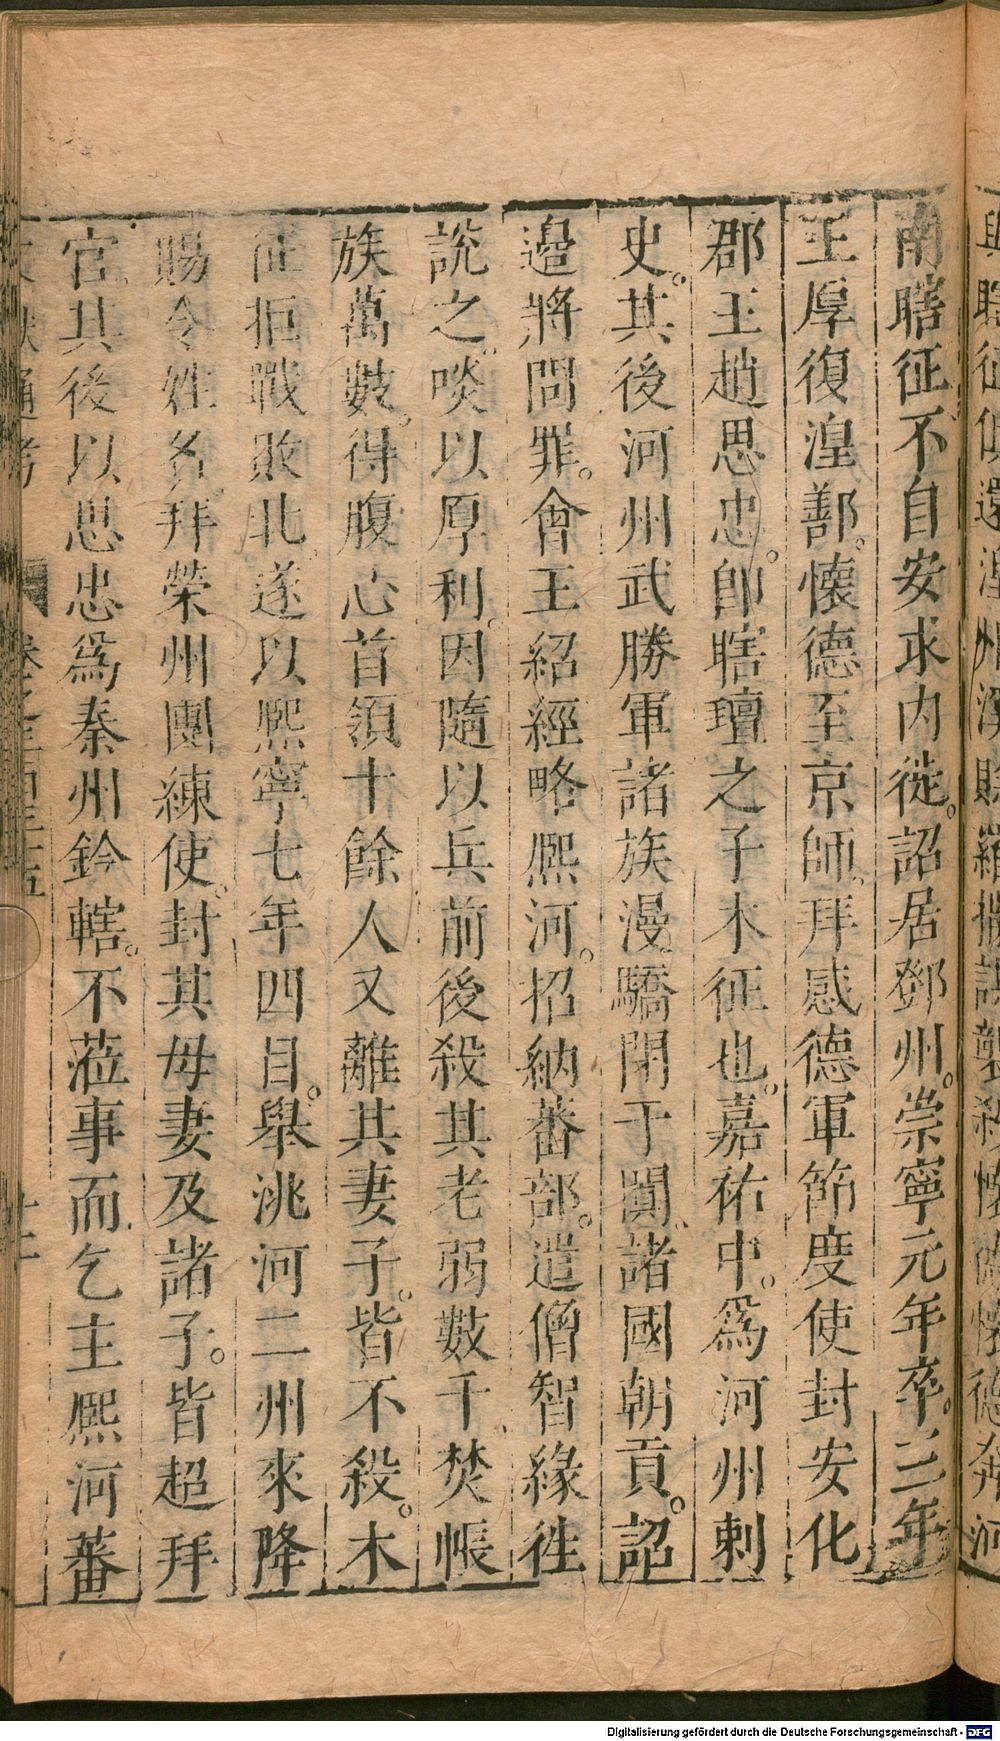 南瞎征不自安求内徙。詔居鄧州。崇寧元年卒。三年
王厚復湟鄯。懷德至京師。拜感德軍節度使封安化
郡王趙思忠。卽瞎㼆之子木征也。嘉祐中。爲河州刺
史。其後河州武勝軍諸族漫驕閉于闐諸國朝貢。詔
邉將問罪。會王紹經略熈河。招納蕃部。遣僧智緣徃
說之。啖以厚利。因隨以兵前後殺其老弱數千焚帳
族萬數。得腹心首領十餘人又離其妻子。皆不殺。木
征拒戰敗北。遂以熙寧七年四月。舉洮河二州來降
賜令姓名。拜榮州團練使。封其母妻及諸子。皆超拜
官。其後以思忠爲秦州鈐轄。不蒞事而乞主熈河蕃
通考 卷之三百三十五
Digitalisierung gefördert durch die Deutsche Forschungsgemeinschaft - DFG